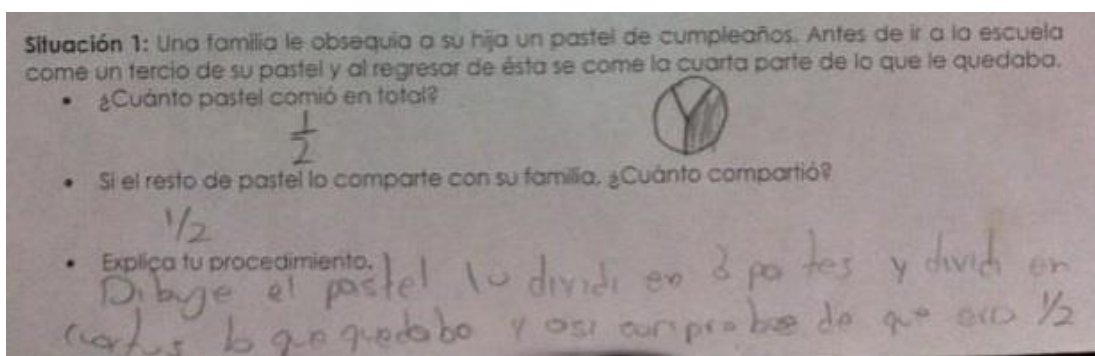 Situación 1: Una familia le obsequia a su hija un pastel de cumpleaños. Antes de ir a la escuela
come un tercio de su pastel y al regresar de ésta se come la cuarta parte de lo que le quedaba.
• ¿Cuánto pastel comió en total?
1/2
• Si el resto de pastel lo comparte con su familia, ¿Cuánto compartió?
1/2
• Explica tu procedimiento.
Dibuje el pastel lo dividi en 3 partes y dividi en
cuartos lo que quedabo y asi comprobe de que era 1/2